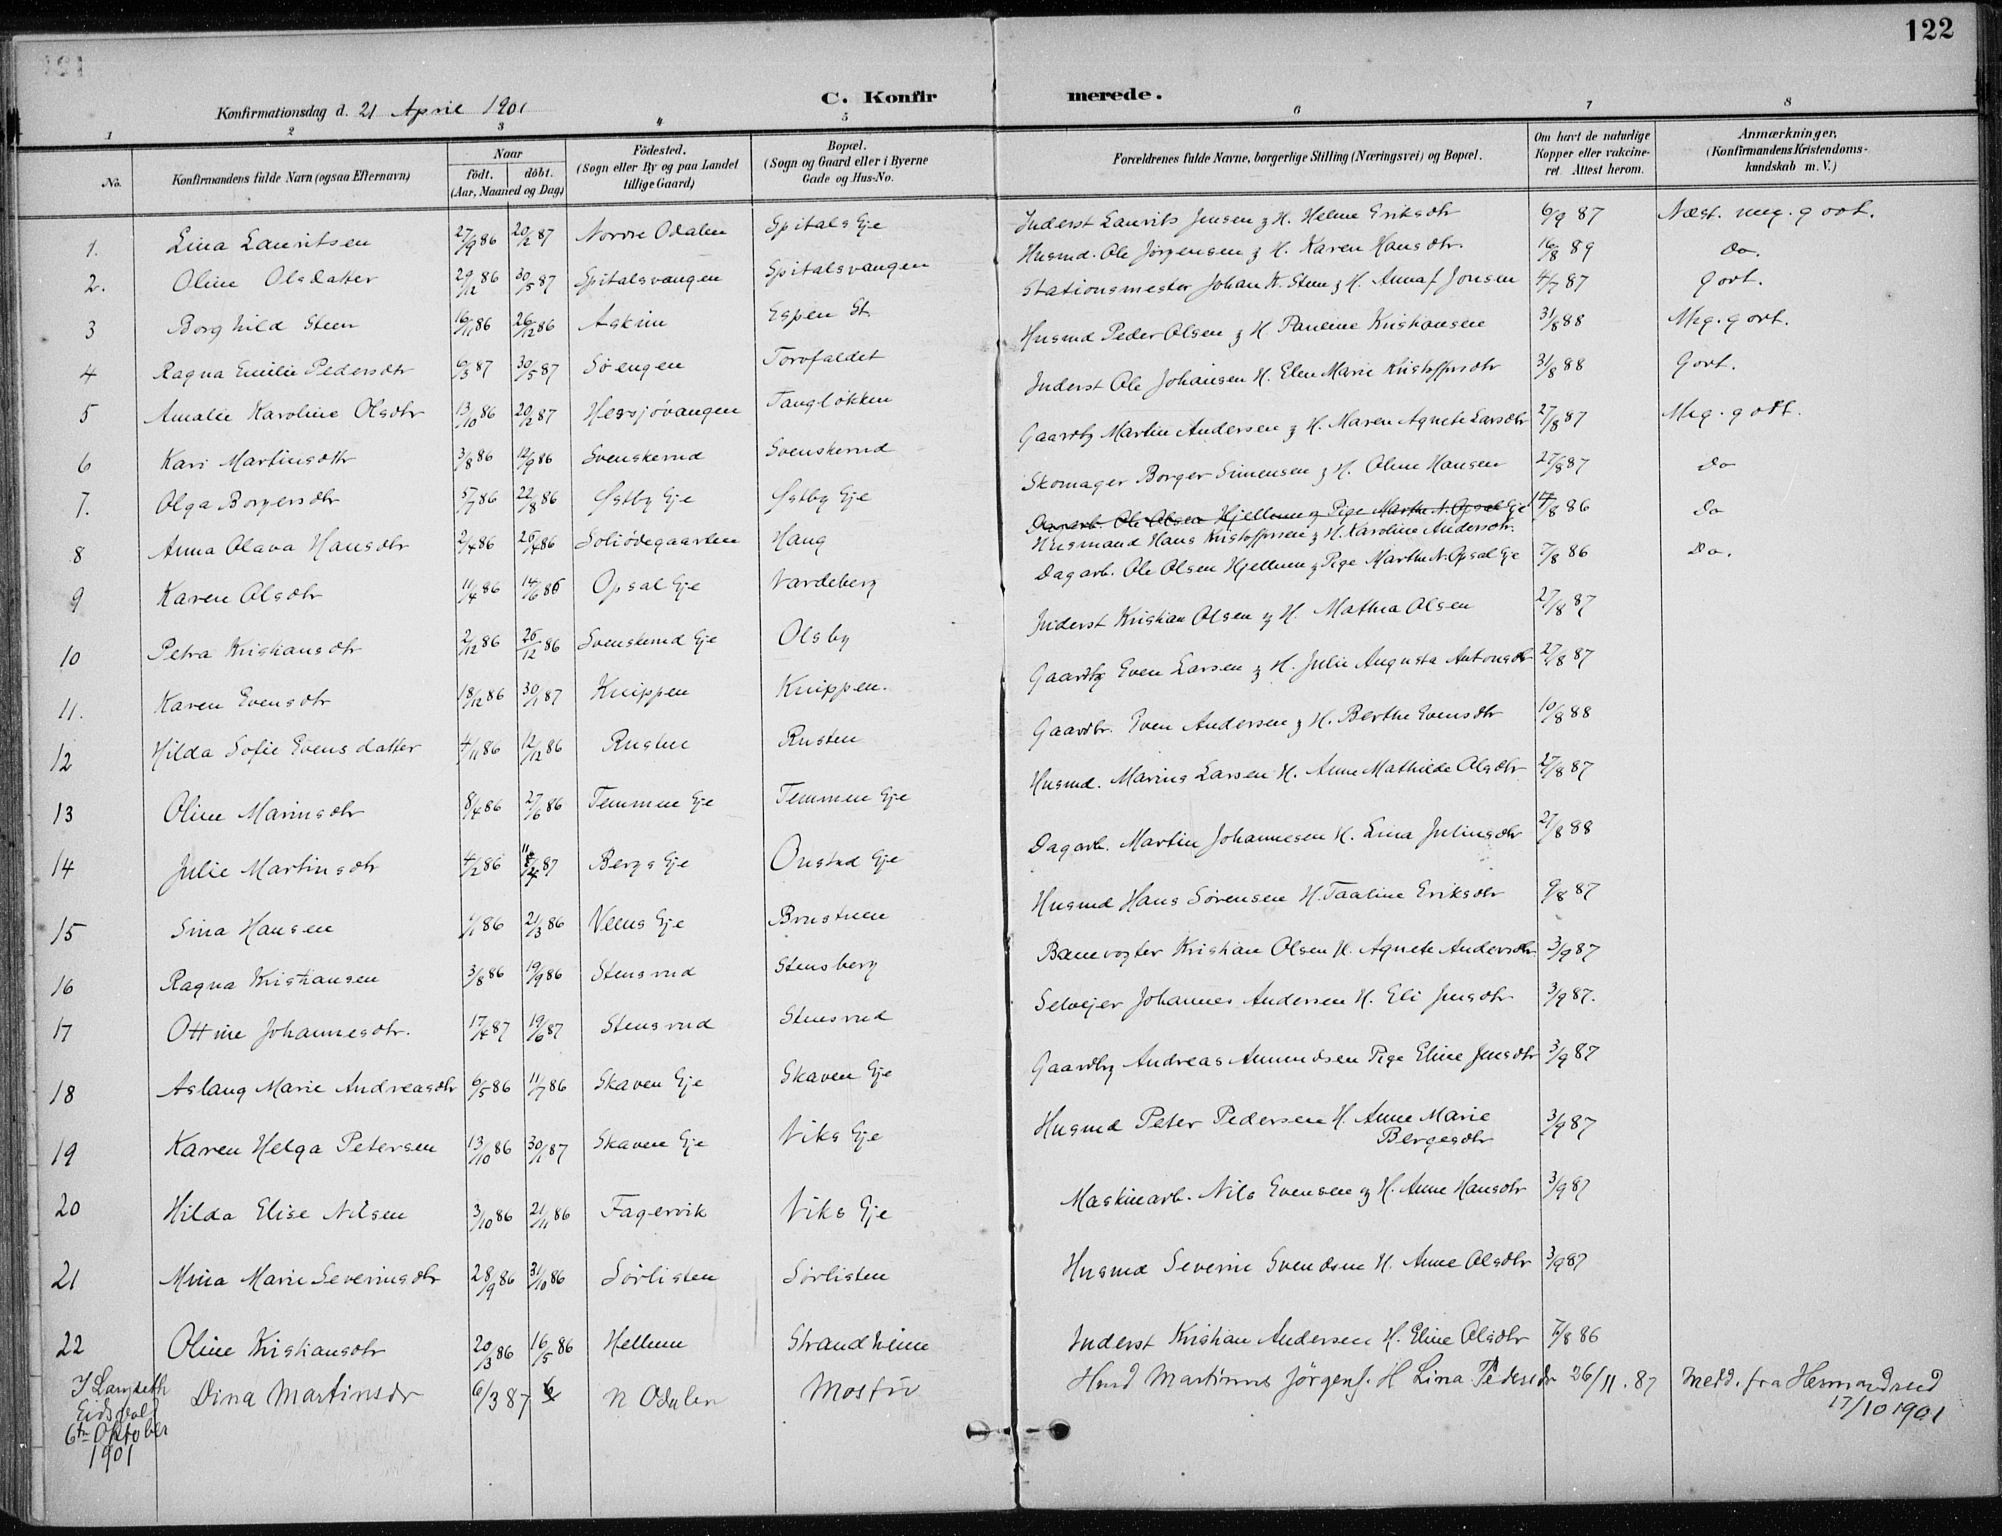 122
Konfirmationsdag d. 21 April 1901
C. Konfirmerede.
1 2 3 4 5 6 7 8
No. Konfirmandens fulde Navn (ogsaa Efternavn) Naar født. døbt. (Aar, Maaned og Dag) Födested. (Sogn eller By og paa Landet tillige Gaard) Bopæl. (Sogn og Gaard eller i Byerne Gade og Hus-No. Forældrenes fulde Navne, borgerlige Stilling (Næringsvei) og Bopæl. Om havt de naturlige Kopper eller vakcineret. Attest herom. Anmærkninger, (Konfirmandens Kristendomskundskab m. V.)
1. Lina Lauritsen 27/9 86 20/2 87 Nordre Odalen Spitals Eje Inderst Laurits Jensen g H. Helene Eriksdtr 6/9 87 Næst. meg. godt.
2. Oline Olsdatter 29/12 86 30/5 87 Spitalsvangen Spitalsvangen Husmd. Ole Jørgensen g H. Karen Hansdtr. 16/8 89 Do.
3 Borghild Steen 16/11 86 26/12 86 Askim Espen St. Stationsmester Johan K. Steen g H. Anna f Jonsen 4/7 87 Godt.
4 Ragna Emilie Pedersdtr 6/3 87 30/5 87 Søengen Torvfaldet Husmd Peder Olsen g H Pauline Kristiansen 31/8 88 Meg. godt.
5 Amalie Karoline Olsdtr 13/10 86 20/2 87 Hersjövangen Tangløkken Inderst Ole Johansen H. Elen Marie Kristoffersdtr 31/8 88 Godt.
6 Kari Martinsdtr 3/8 86 12/9 86 Svenskerud Svenskerud Gaardbg Martin Andersen g H. Maren Agnete Larsdtr 27/8 87 Meg. godt.
7. Olga Borgersdtr 5/7 86 22/8 86 Østby Eje Østby Eje Skomager Borger Simensen g H. Oline Hansen 27/8 87 Do
8 Anna Olava Hansdtr 2/4 86 26/4 86 Haug Dagarb. Ole Olsen Hjellum g Pige Marthe N. Opsal Eje 14/8 86 Do
Husmand Hans Kristoffersen g H. Karoline Andersdtr.
9 Karen Olsdtr 11/4 86 14/6 86 Opsal Eje Vardeberg Dagarb. Ole Olsen Hjellum g Pige Marthe N. Opsal Eje 7/8 86 Do.
10 Petra Kristiansdtr 2/12 86 26/12 86 Svenskerud Eje Olsby Inderst Kristian Olsen g H. Mathea Olsen 27/8 87
11. Karen Evensdtr 18/12 86 30/1 87 Knippen Knippen. Gaardbg Even Larsen g H. Julie Augusta Antonsdtr 27/8 87
12 Hilda Sofie Evensdatter 4/11 86 12/12 86 Rusten Rusten Gaardbr. Even Andersen g H. Berthe Evensdtr 10/8 88
13 Oline Marinsdtr 8/4 86 27/6 86 Temmen Eje Temmen Eje Husmd. Marius Larsen H. Anne Mathilde Olsdtr 27/8 87
14 Julie Martinsdtr 4/2 86 11/4 87 Bergs Eje Onstad Eje Dagarb. Martin Johannesen H. Lina Juliusdtr 27/8 88
15 Sina Hansen 1/1 86 21/3 86 Veens Eje Brustuen Husmd Hans Sörensen H. Taaline Eriksdtr 9/8 87
16 Ragna Kristiansen 3/8 86 19/9 86 Stensrud Stensberg Banevogter Kristian Olsen H. Agnete Andersdtr 3/9 87
17 Ottine Johannesdtr. 17/4 87 19/6 87 Stensrud Stensrud Selvejer Johannes Andersen H. Eli Jensdtr 3/9 87.
18 Aslaug Marie Andreasdtr 6/5 86 11/7 86 Skaven Eje Skaven Eje Gaardbg Andreas Amundsen Pige Eline Jensdtr 3/9 87
19 Karen Helga Petersen 13/10 86 30/1 87 Skaven Eje Viks Eje Husmd Peter Pedersen H. Anne Marie 3/9 87
Bergesdtr
20 Hilda Elise Nilsen 3/10 86 21/11 86 Fagervik Viks Eje Maskinarb. Nils Evensen g H. Anne Hansdtr 3/9 87
21 Mina Marie Severinsdtr 28/9 86 31/10 86 Sörlisten Sörlisten Husmd Severin Svendsen H. Anne Olsdtr 3/9 87
22 Oline Kristiansdtr 20/3 86 16/5 86 Hellum Strandheim Inderst Kristian Andersen H. Eline Olsdtr 7/8 86
I Langseth
Eidsvold
6te Oktober
1901
Dina Martinsdr 6/3 87 N Odalen Mosfu Husd Martinus Jörgens. H Lina Pedersdr 26/11. 87 Medd. fra
17/10 1901